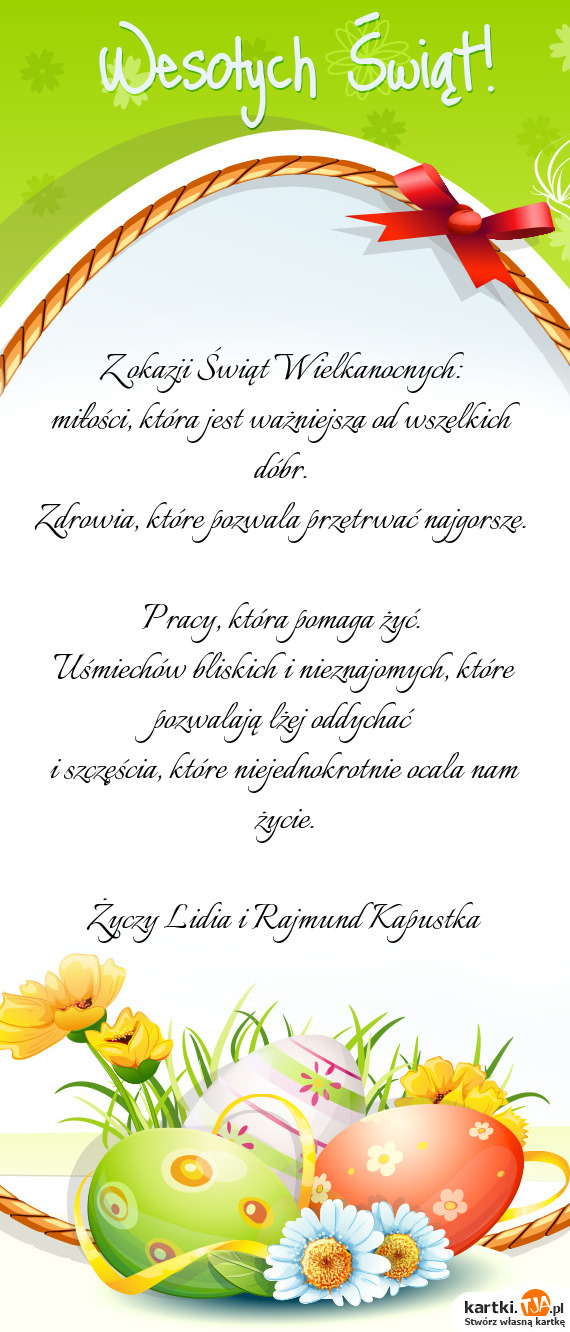 Wesołych Świąt!
Z okazji Świąt Wielkanocnych:
miłości, która jest ważniejsza od wszelkich
dóbr.
Zdrowia, które pozwala przetrwać najgorsze.
Pracy, która pomaga żyć.
Uśmiechów bliskich i nieznajomych, które
pozwalają lżej oddychać
i szczęścia, które niejednokrotnie ocala nam
życie.
Życzy Lidia i Rajmund Kapustka
kartki.TJA.pl
Stwórz własną kartkę